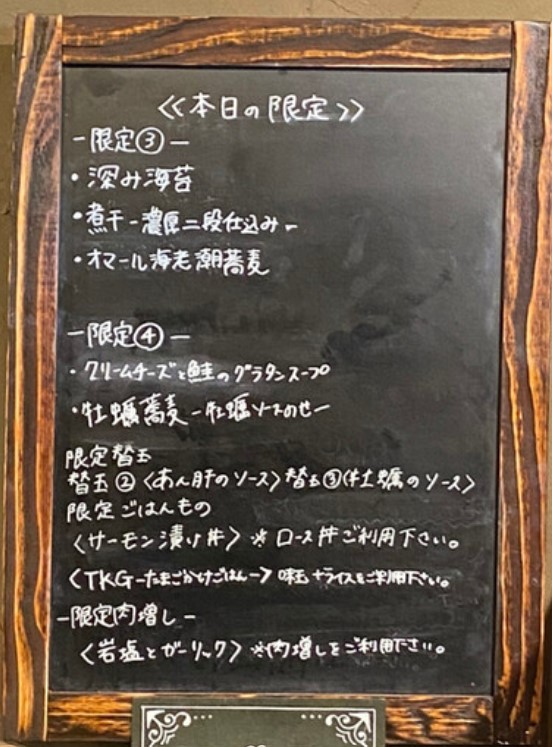 <<本日の限定>>
-限定③-
・深み海苔
・煮干-濃厚二段仕込み-
・オマール海老潮蕎麦
-限定④-
・クリームチーズと鮭のグラタンスープ
・牡蠣蕎麦-牡蠣ソースのせ-
限定替玉
替玉②<あん肝のソース>替玉③<牡蠣のソース>
限定ごはんもの
<サーモン漬け丼>※ロース丼ご利用下さい。
<TKG-たまごかけごはん->味玉+ライスをご利用下さい。
-限定肉増し-
<岩塩とガーリック>※肉増しをご利用下さい。